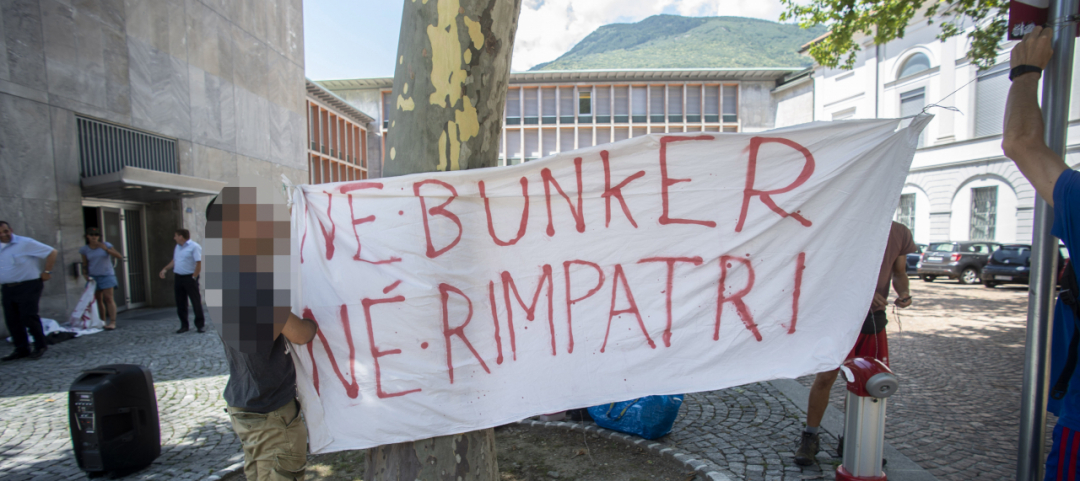 NE·BUNKER
NÉ·RIMPATRI